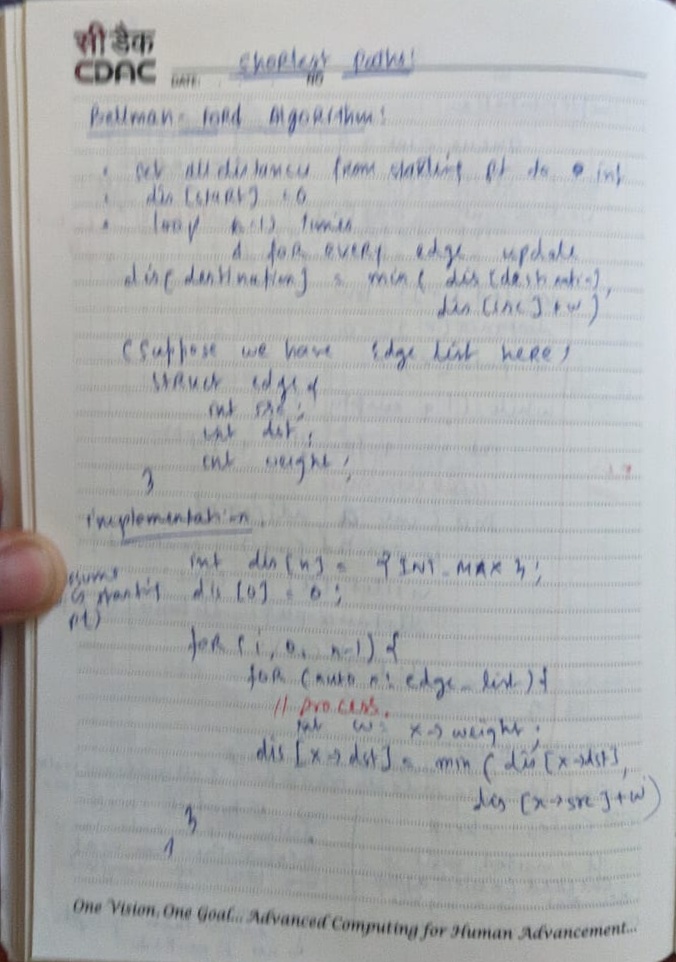 सी डैक
CDAC
DATE:
NO
Shortest Paths!
Bellman-Ford Algorithm!
. set all distances from starting pt to inf
. dis [start] = 0
. loop n-1 times
& for every edge update
dis[destination] = min( dis[destination],
dis [src] + w)
(Suppose we have Edge list here)
struct edge {
int src;
int dst;
int weight;
}
implementation.
int dis[n] = {INT_MAX};
dis [0] = 0;
starting
pt)
for (i, 0, n-1) {
for (auto x: edge_list) {
// process.
int w = x→weight;
dis [x→dst] = min ( dis [x→dst],
dis [x→src] + w)
}
}
One Vision, One Goal... Advanced Computing for Human Advancement...